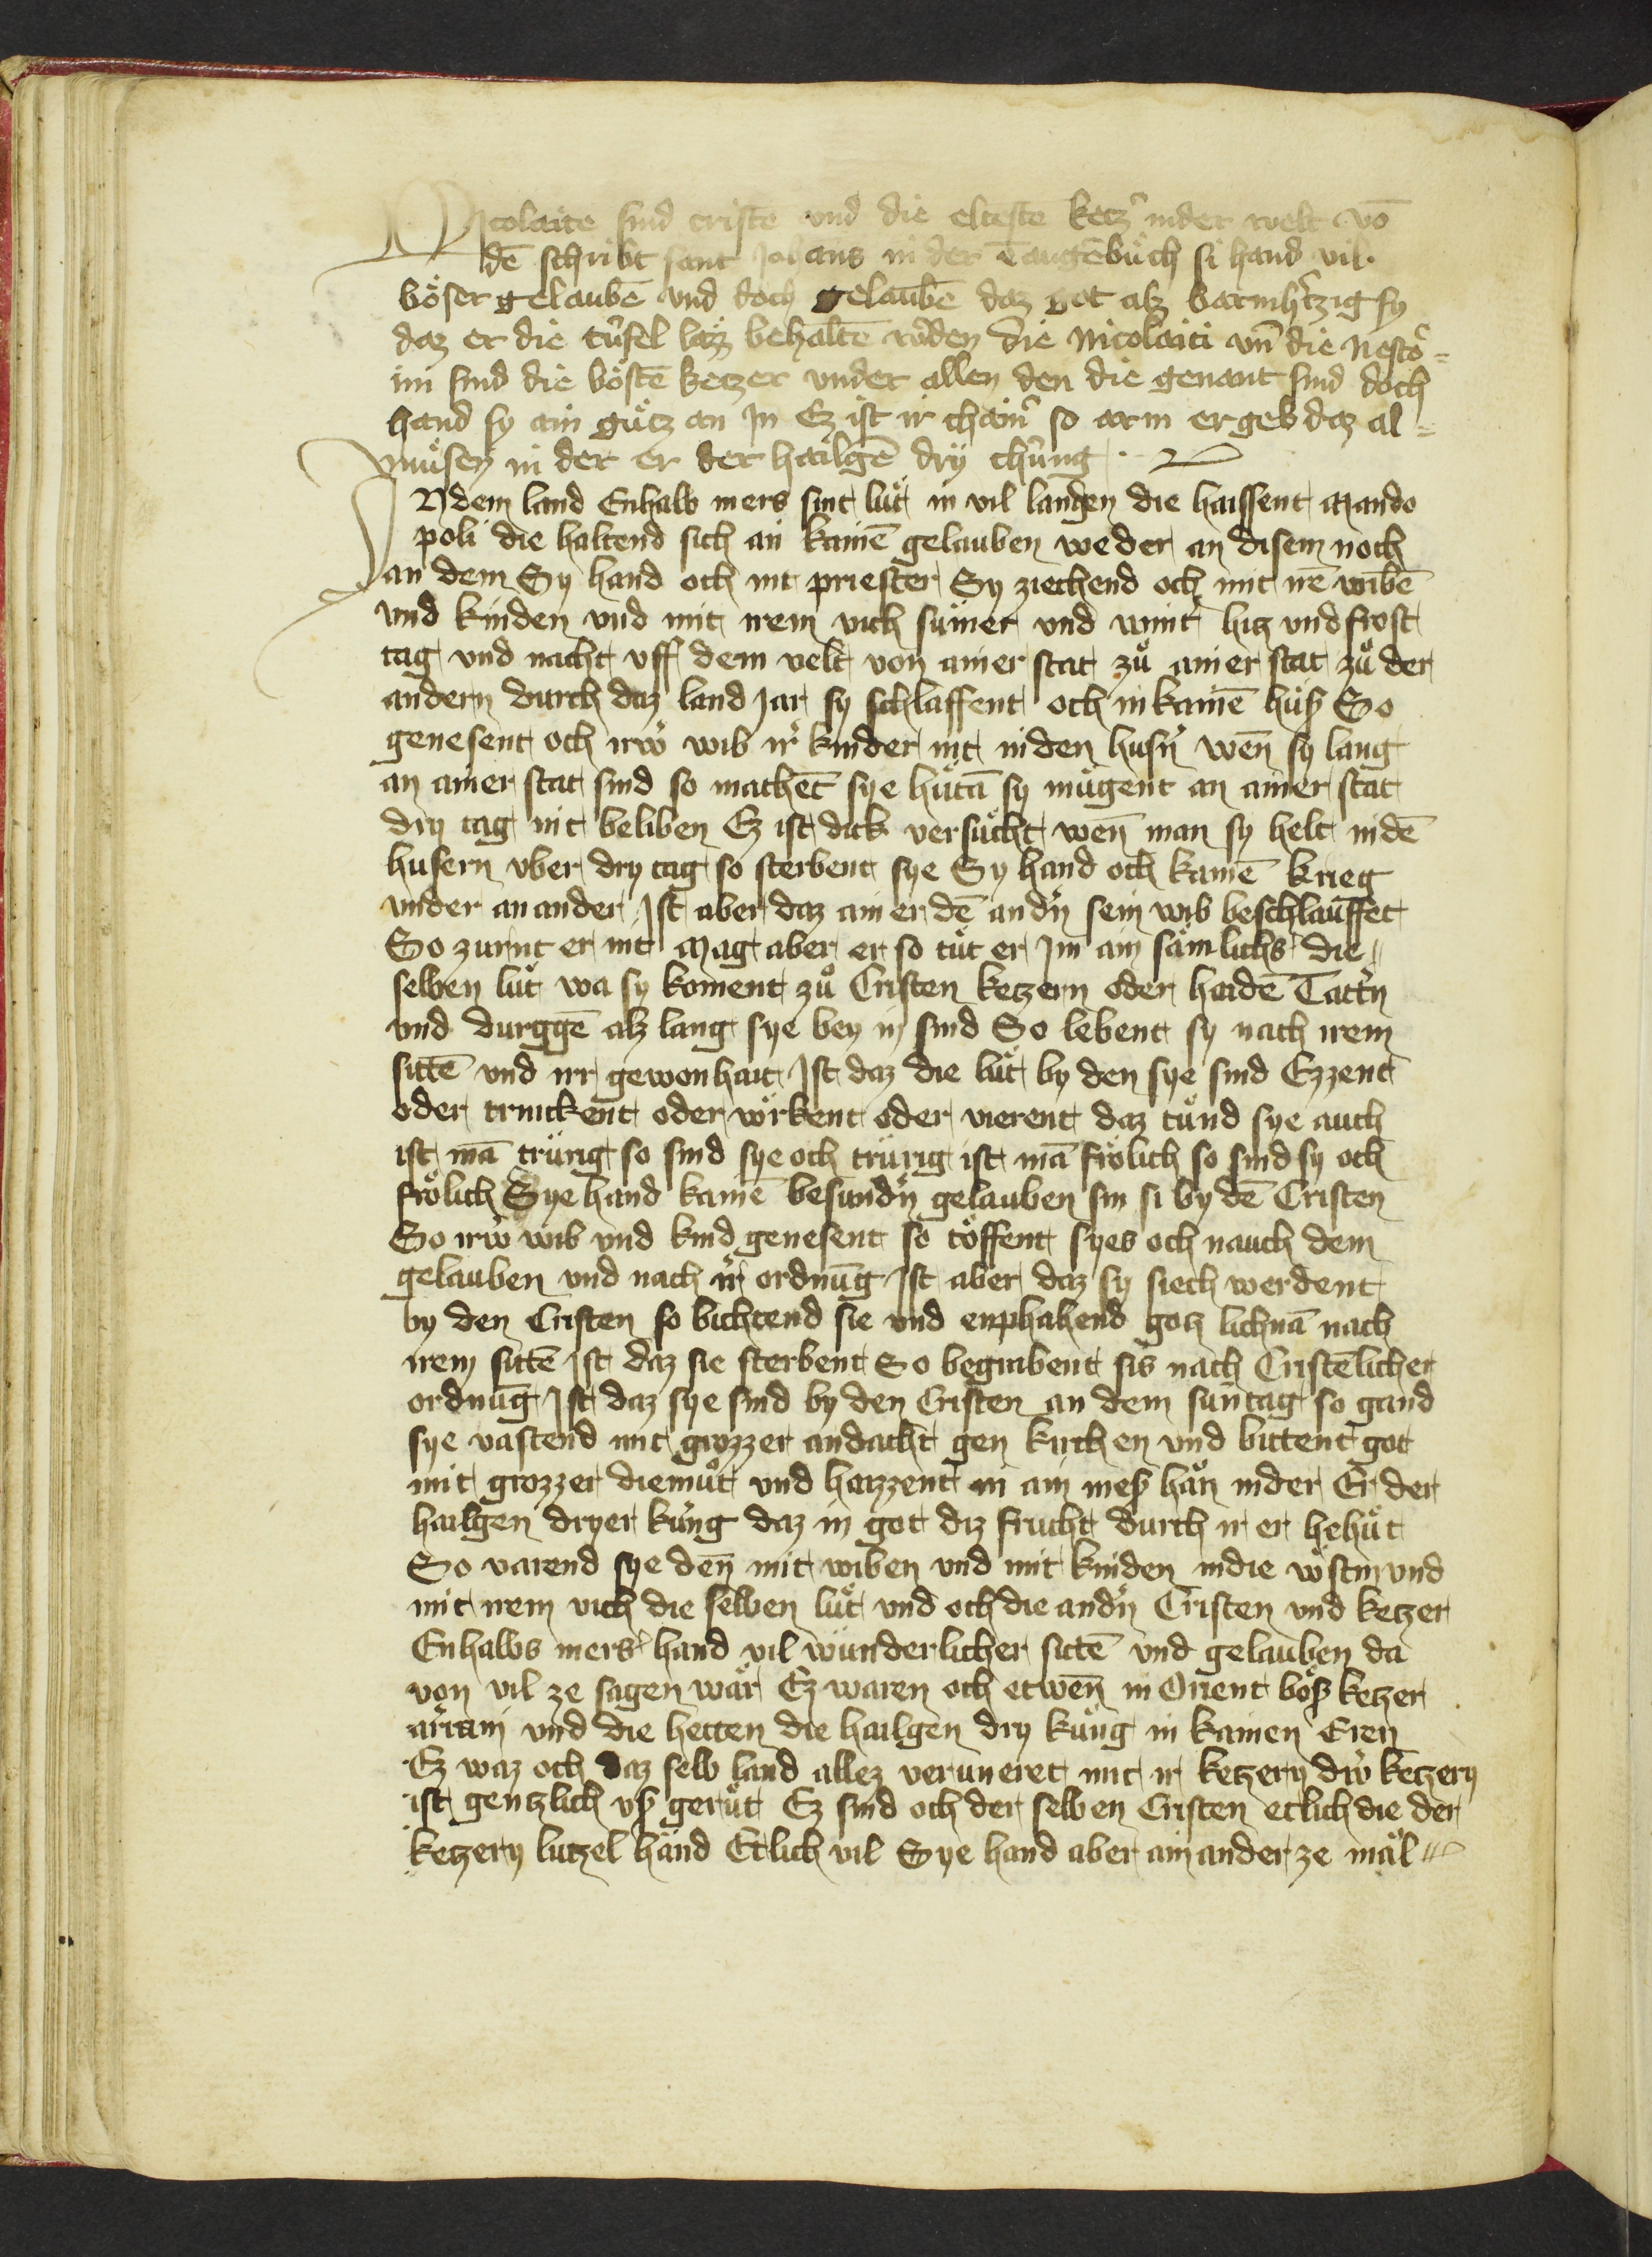 Nicolaite sind cristē und die elteste ketz͛ inder welt vō
dē schribt sant Johans in der taugēbuͦch si hand vil
boͤser gelaubē und doch gelaubē daz got alz barmh͛tzig sy
daz er die tuͤfel laz behaltē w͛den die Nicolaiti vn̄ die Nesto͛=
ini sind die boͤstē ketzer under allen den die genant sind doch
hand sy ain guͦtz an in Ez ist ir chain͛ so arm er geb daz al=
muͦsen in der er der hailgē dry chuͤng
IN dem land Enhalb mers sint luͤt in vil landen die haissent Mando
poli die haltend sich an kainē gelauben weder an disem noch
an dem Sy hand och nit priester Sy ziechend och mit irē wibē
und kinden und mit irem vich sum̄er und wint͛ hitz und frost
tag und nacht uff dem velt von ainer stat zuͦ ainer stat zuͦ der
andern durch daz land Jar sy schlaffent och in kainē huß So
genesent och irw͛ wib ir͛ kinder nit in den husn͛ wen̄ sy lang
an ainer stat sind so machēt sye huͤtā sy mugent an ainer stat
dry tag nit beliben Ez ist dick versuͦcht wen̄ man sy helt in dē
husern vber dry tag so sterbent sye Sy hand och kainē krieg
under an ander Ist aber daz ainer dē and͛n sein wib beschlauffet
So zurnt er nit Mag aber er so tuͦt er Im ain saͤmlichs die
selben luͤt wa sy koment zuͦ Cristen ketzern oder haidē Tatt͛n
und durggē alz lang sye bey in sind So lebent sy nach irem
sittē und irr gewonhait Ist daz die luͤt by den sye sind Ezzent
oder trinckent oder woͤrkent oder vierent daz tuͦnd sye auch
ist mā trurig so sind sye och trurig ist mā froͤlich so sind sy och
froͤlich Sye hand kainē besund͛n gelauben sin si by dē Cristen
So irw͛ wib und kind genesent so toͤffent syes och nauch dem
gelauben und nach ir͛ ordnūg Ist aber daz sy siech werdent
by den Cristen so bichtend sie und enphahend gotz lichnā nach
irem sittē Ist daz sie sterbent So begrabent sis nach Cristēlicher
ordnūg Ist daz sye sind by den Cristen an dem sun̄tag so gand
sye vastend mit grozzer andacht gen kirchen und bittent got
mit grozzer diemuͦt und haizzent in ain meß han in der Er der
hailgen dryer kuͤng daz in got diz frucht durch ir er behuͤt
So varend sye den̄ mit wiben und mit kinden in die woͤstin und
mit irem vich die selben luͤt und och die and͛n Cristen und ketzer
Enhalbs mers hand vil wunderlicher sittē und gelauben da
von vil ze sagen waͤr Ez waren och etwen̄ in Orient boͤß ketzer
arriani und die hetten die hailgen dry kuͤng in kainen Eren
Ez waz och daz selb land allez veruneret mit ir ketzery dw͛ ketzery
ist gentzlich uß geruͤt Ez sind och der selben Cristen etlich die der
ketzery lutzel hand Etlich vil Sye hand aber ain ander ze mal